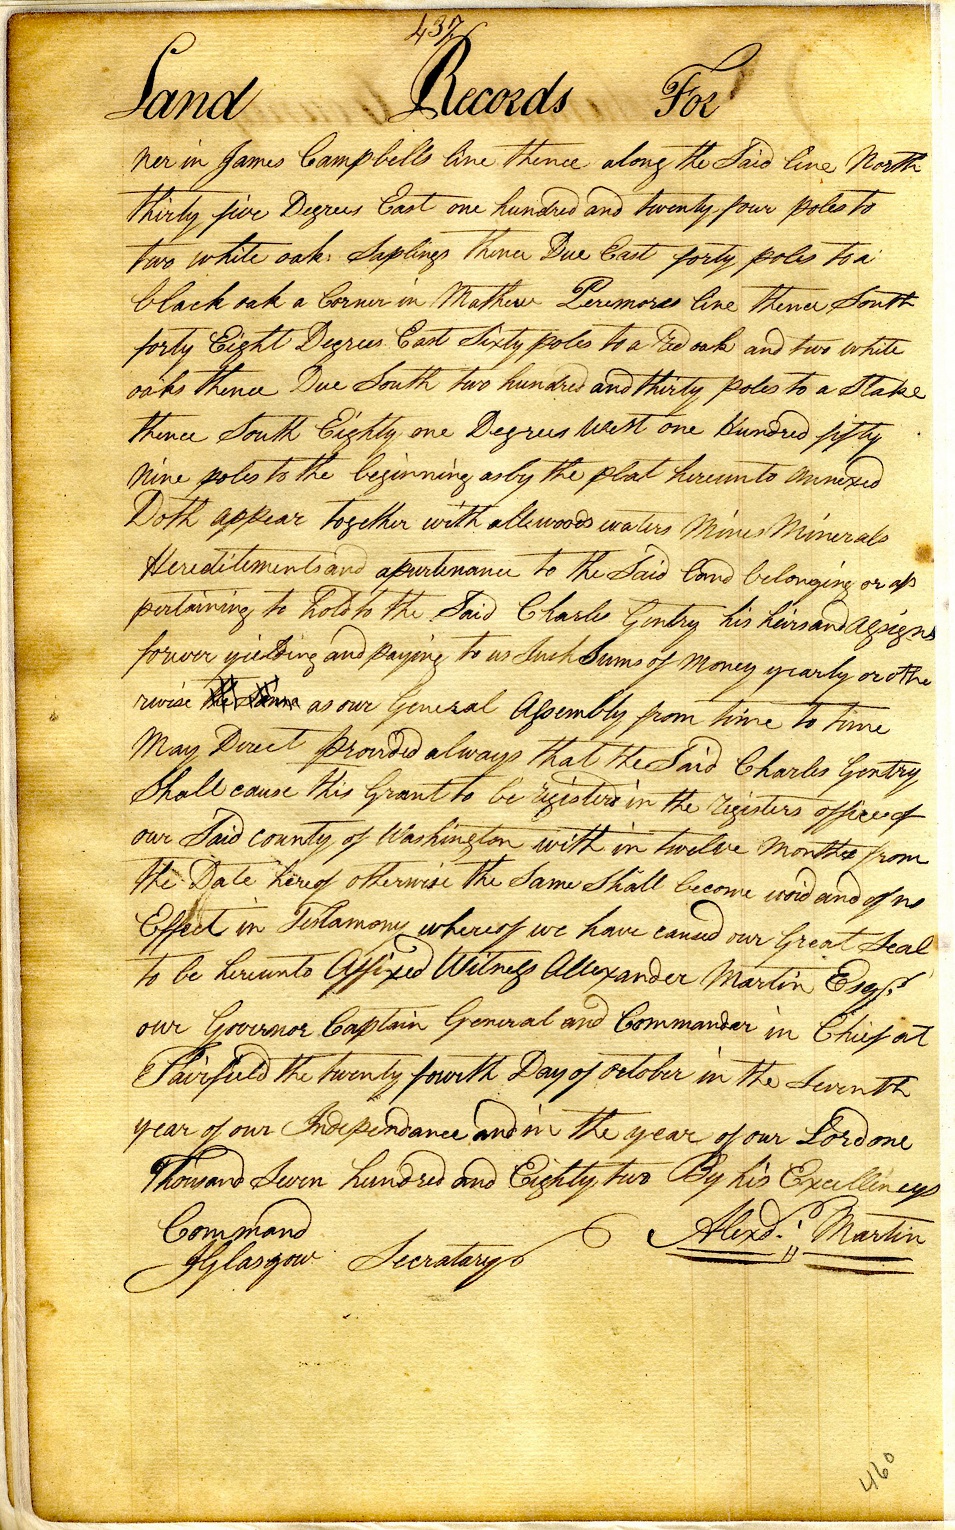 437
Land Records For
ner in James Campbells line thence along the Said line North
thirty five Degrees East one hundred and twenty four poles to
two white oak Saplings thence Due East forty poles to a
black oak a Corner in Mathew Peremores line thence South
forty Eight Degrees East Sixty poles to a Red oak and two white
oaks thence Due South two hundred and thirty poles to a Stake
thence South Eighty one Degrees West one Hundred fifty
Nine poles to the beginning as by the plat hereunto Annexed
Doth appear together with all woods waters Mines Minerals
Hereditements and apurtenance to the Said land belonging or ap
pertaining to hold to the Said Charles Gentry his heirs and Assigns
forever yielding and paying to us Such Sums of Money yearly or othe
rwise the Same as our General Assembly from time to time
May Direct provided always that the Said Charles Gentry
Shall cause this Grant to be registerd in the registers office of
our Said county of Washington with in twelve Months from
the Date hereof otherwise the Same Shall become void and of no
Effect in Testamony whereof we have caused our Great Seal
to be hereunto Affixed Witness Allexander Martin Esqr.
our Governor Captain General and Commander in Chief at
Fairfield the twenty fourth Day of october in the Seventh
year of our Independance and in the year of our Lord one
Thousand Seven hundred and Eighty two By his Excellencys
Command Alexd. Martin
JGlasgow Secratary
460